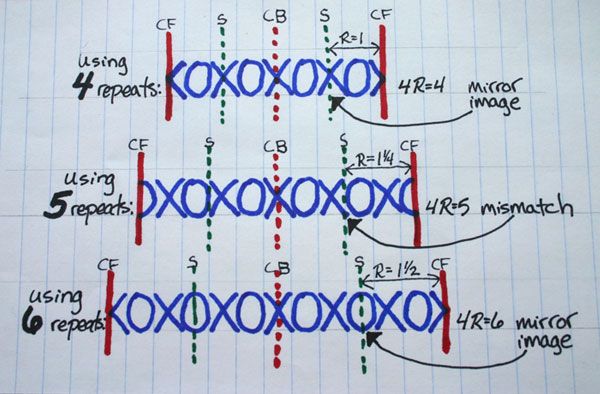 CF S CB S CF
R=1
using
4 repeats:
4R=4
mirror
image
CF S CB S CF
R=1¼
using
5 repeats:
4R=5 mismatch
CF S CB S CF
R=1½
using
6 repeats:
4R=6 mirror
image